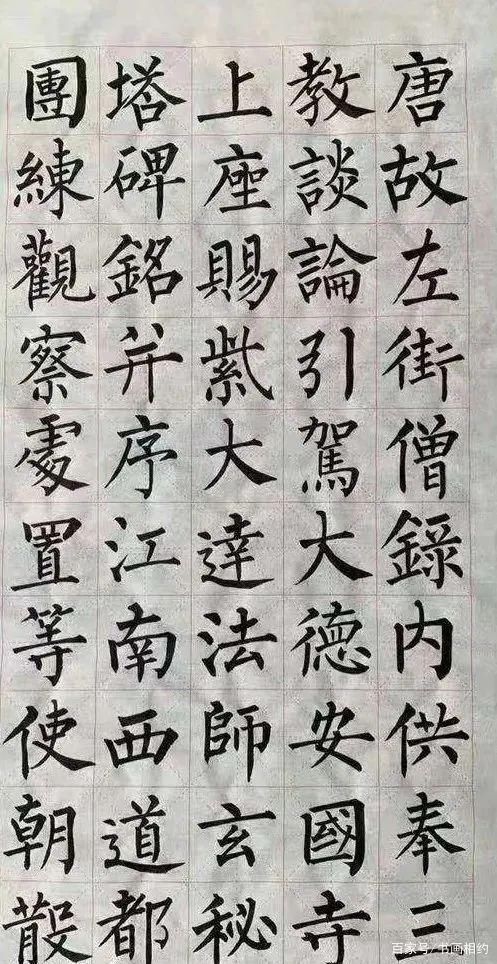 唐故左街僧錄內供奉三
教談論引駕大德安國寺
上座賜紫大達法師玄秘
塔碑銘并序江南西道都
團練觀察處置等使朝散
百家号/书画相约